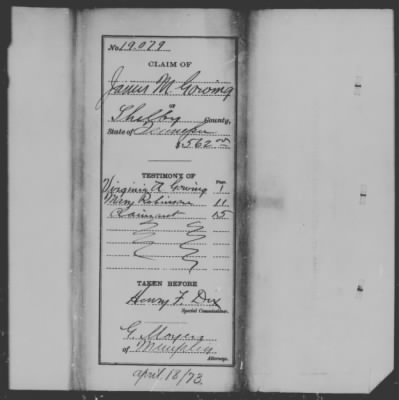 No. 19.079
CLAIM OF
James M. Gowing
of
Shelby County,
State of Tennessee
$562.00
TESTIMONY OF Page
Virginia A Gowing 1
Mary Robinson 11
Claimant 15
TAKEN BEFORE
Henry F. Dix
Special Commissioner.
G. Moyers
of Memphis
Attorney.
April 18/73.